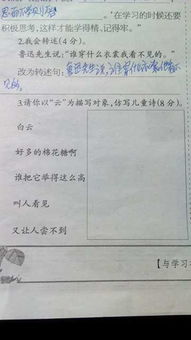 思而不学则殆。“在学习的时候还要
积极思考，这样才能学得精，记得牢。”
2.我会转述(4分)。
鲁迅先生说：“谁穿什么衣裳我看不见的。”
改为转述句：鲁迅先生说，谁穿什么衣裳他看不
见的。
3.请你以“云”为描写对象，仿写儿童诗(8分)。
白云
好多的棉花糖啊
谁把它举得这么高
叫人看见
又让人尝不到
【与学习